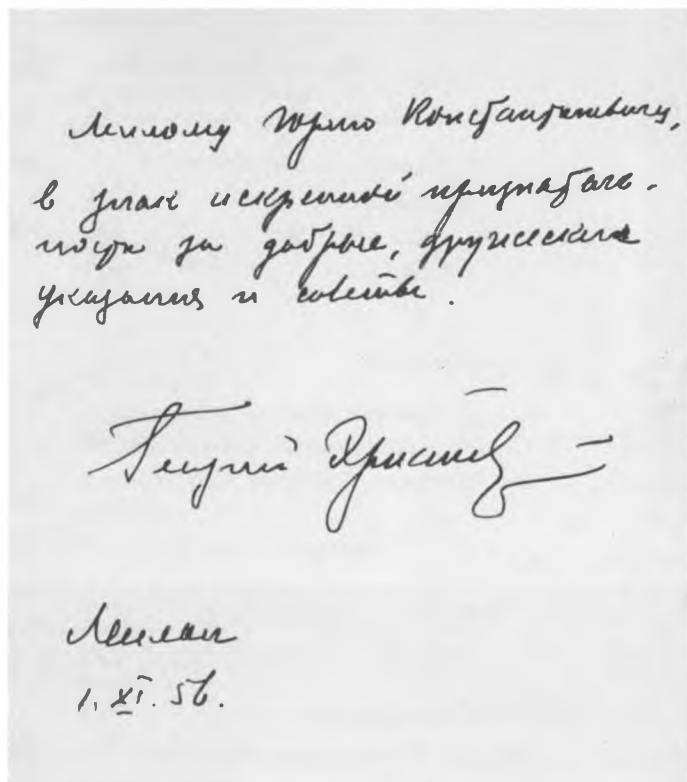 Милому Юрию Константиновичу,
в знак искренней признатель-
ности за добрые, дружеские
указания и советы.
Георгий
Милан
1. XI. 56.